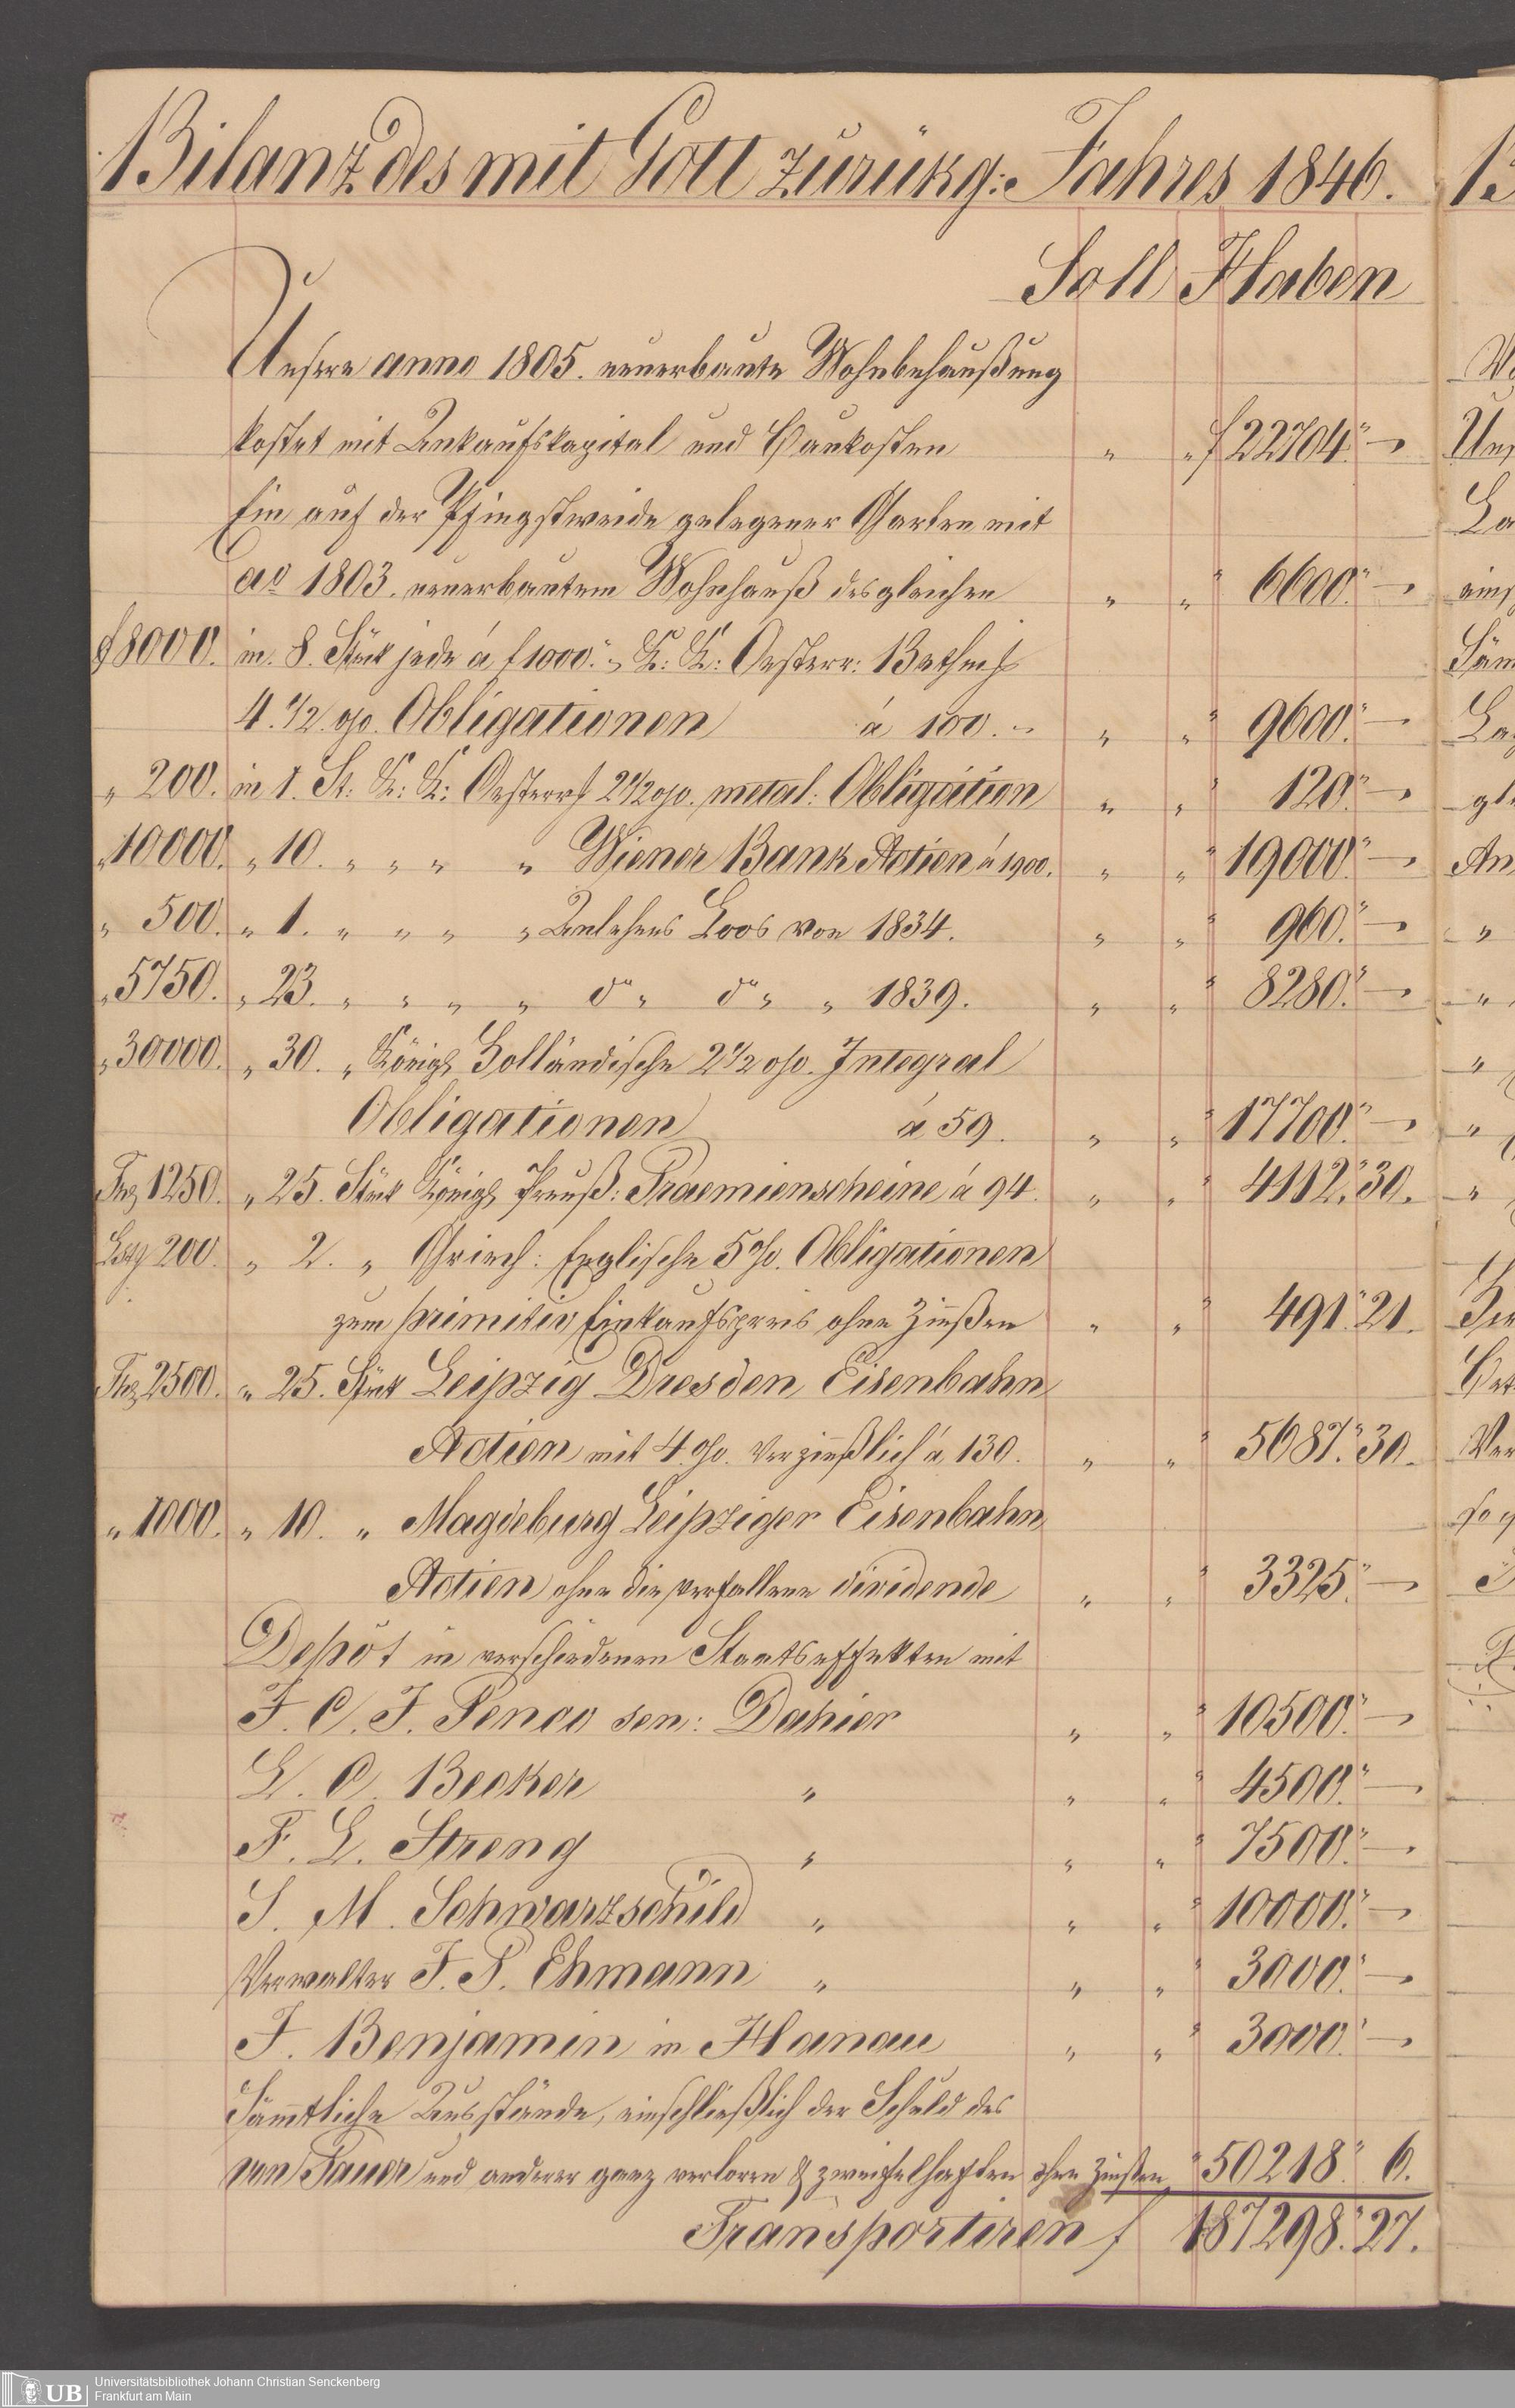 Bilanz des mit Gott zurükg: Jahres 1846.
Soll Haben
Unsere anno 1805. neuerbaute Wohnbehaußung
kostet mit Ankaufskapital und Baukosten " " f 22704." —
Ein auf der Pfingstweide gelegener Garten mit
ao 1803. neuerbautem Wohnhauß desgleichen " " " 6600." —
f 8000. in 8. Stük jede á f 1000." K: K: Oesterr: Bethm
4. 1/2 o/o. Obligationen á 100. " " " 9600." —
" 200. in 1. St: K: K: Oesterr 2 1/2 o/o. metal: Obligation " " " 120." —
" 10000. " 10. " " " " Wiener Bank Actien á 1900. " " " 19000." —
" 500. " 1. " " " " Anlehens Loos von 1834. " " " 960." —
" 5750. " 23. " " " " do " do " " 1839. " " " 8280." —
" 30000. " 30. " Königl Holländische 2 1/2 o/o. Integral
Obligationen á 59. " " " 17700." —
Thr 1250. " 25. Stük Königl Preuß: Praemienscheine á 94. " " " 4112." 30.
Lstg 200. " 2. " Griech: Englische 5 o/o. Obligationen
zum primitiv Einkaufspreis ohne Zinßen " " " 491." 21.
Thr 2500. " 25. Stük Leipzig Dresden Eisenbahn
Actien mit 4. o/o. verzinßlich á 130. " " " 5687." 30.
" 1000. " 10. " Magdeburg Leipziger Eisenbahn
Actien ohne die verfallene dividende " " " 3325." —
Depôt in verschiedenen Staatseffekten mit
J. C. J. Penco sen: Dahier " " " 10500." —
L. C. Becker " " " " 4500." —
F. L. Streng " " " " 7500." —
S. M. Schwarzschild " " " " 10000." —
Verwalter J. P. Ehmann " " " " 3000." —
J. Benjamin in Hanau " " " 3000." —
Sämtliche Ausstände, einschließlich der Schuld des
von Pauer und anderer ganz verloren & zweifelhaften ohne Zinßen " 50218." 6.
Transportiren f 187298." 27.
UB Universitätsbibliothek Johann Christian Senckenberg
Frankfurt am Main